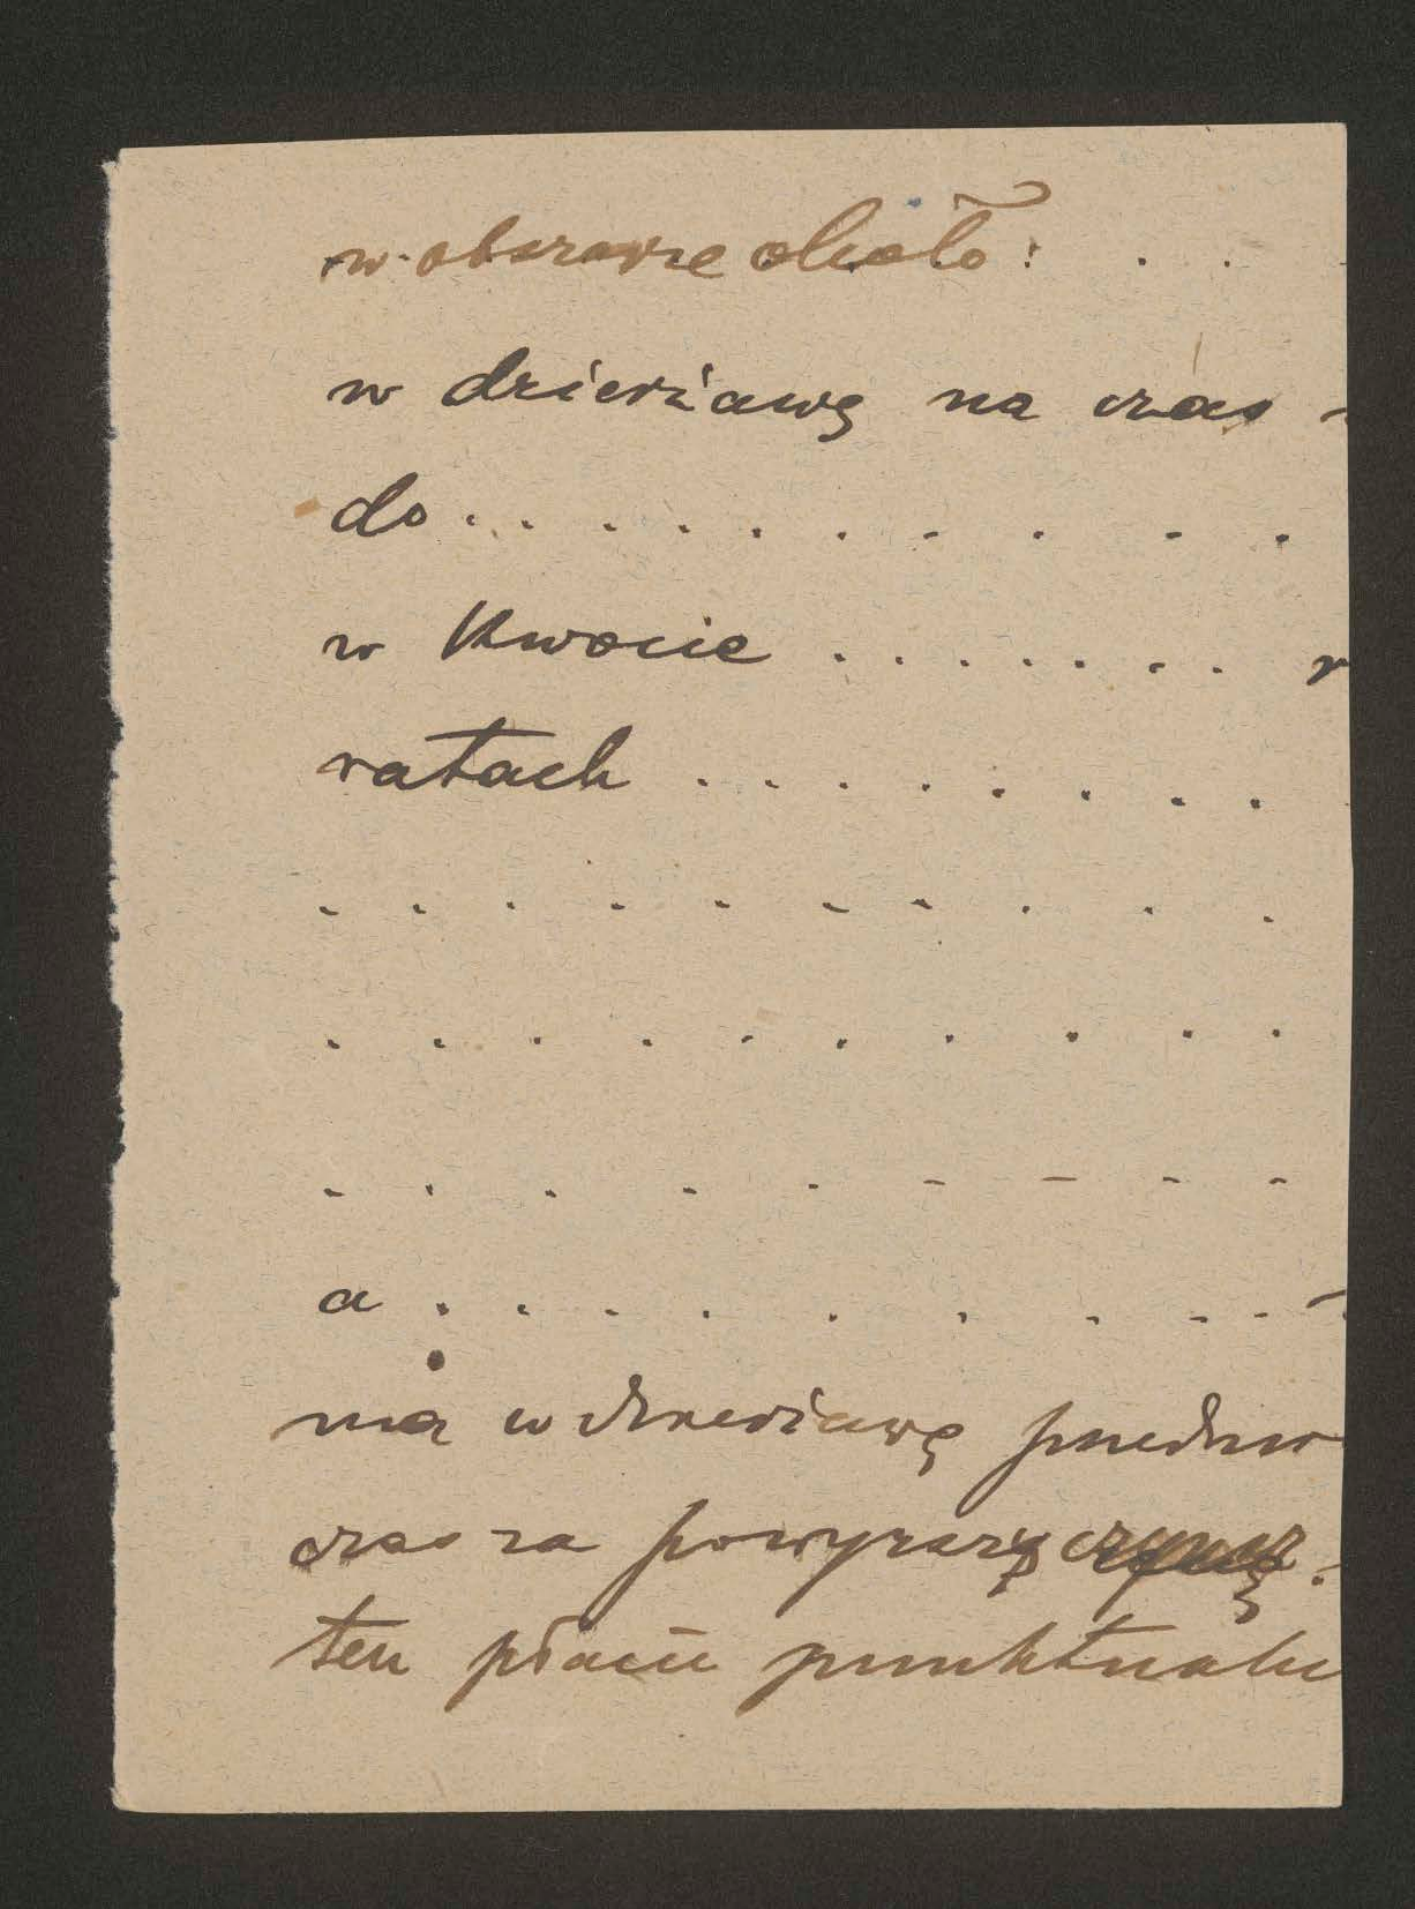 w obszarze około: . . .
w dzierżawę na czas
do . . . . . . . . . .
w Kwocie . . . . . . .
ratach . . . . . . . .
. . . . . . . . . .
. . . . . . . . . .
. . . . . . . . . .
a . . . . . . . . .
ma w dzierżawę
czas za powyższy czynsz.
ten płacić punktualn